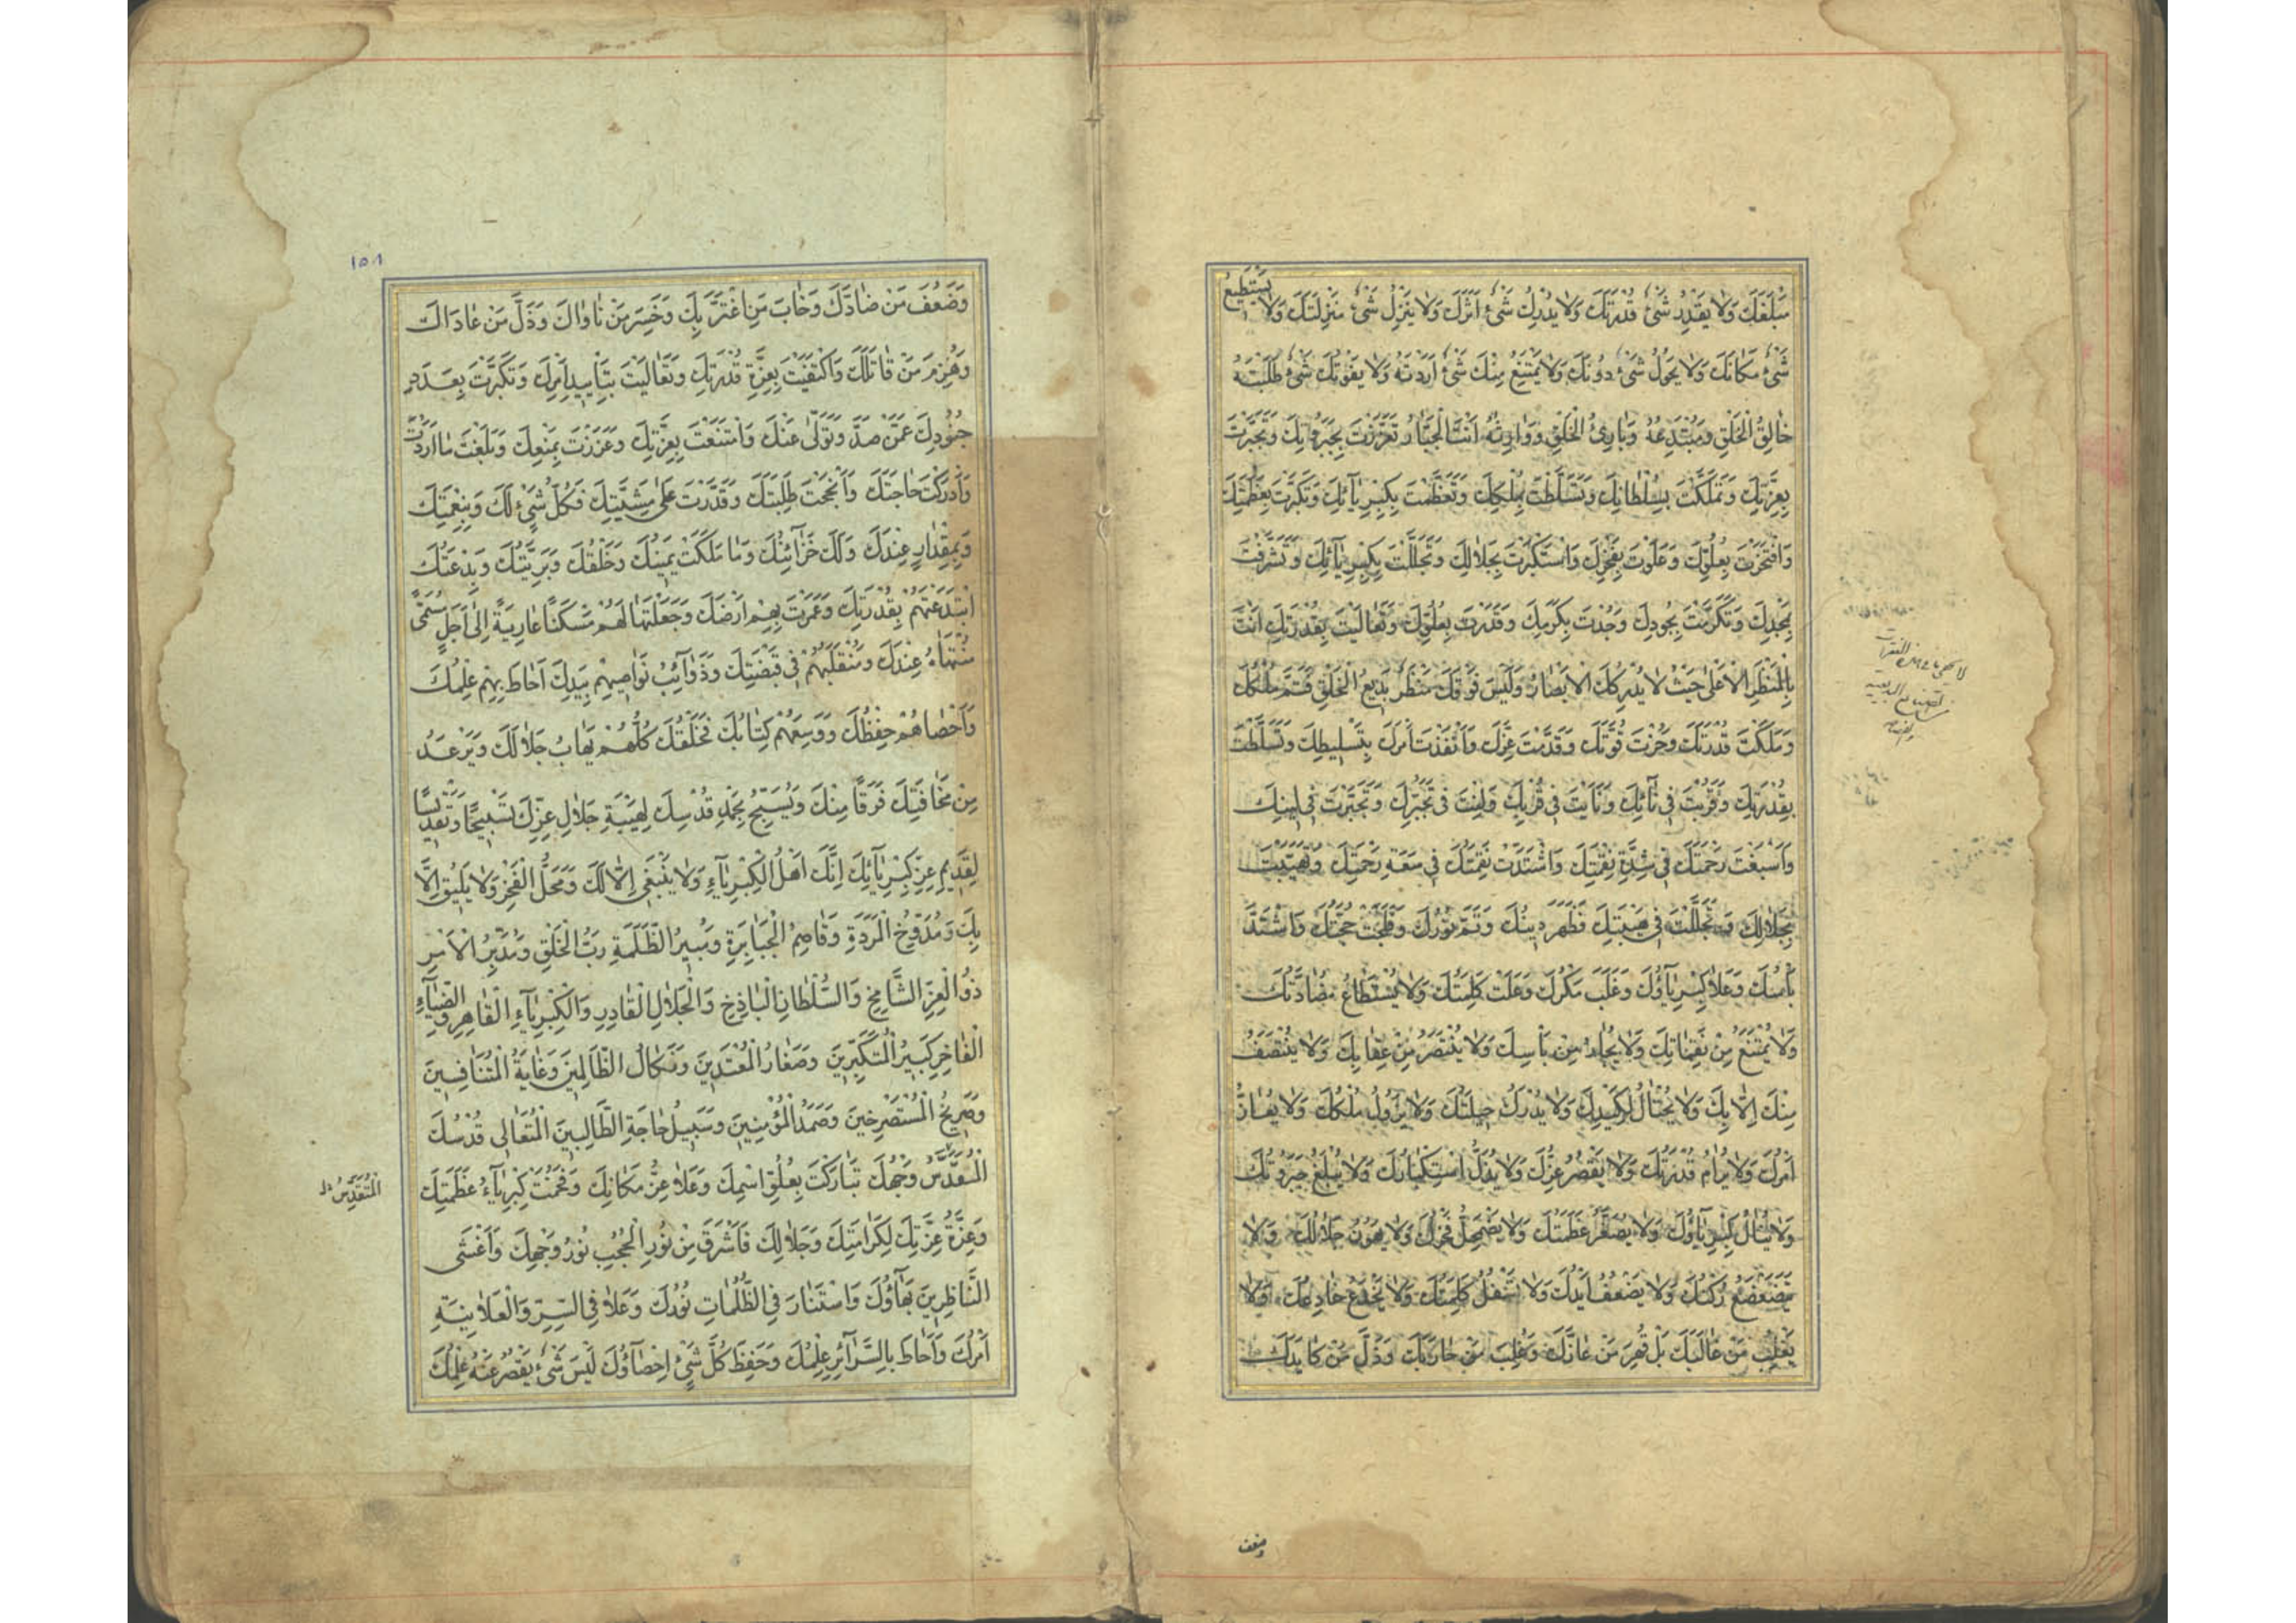 مَبْلَغَكَ وَلَا يَقْدِرُ شَىْءٌ قُدْرَتَكَ وَلَا يُدْرِكُ شَىْءٌ اَثَرَكَ وَلَا يَنْزِلُ شَىْءٌ مَنْزِلَتَكَ وَلَا يَسْتَطِيعُ
شَىْءٌ مَكَانَكَ وَلَا يَحُولُ شَىْءٌ دُونَكَ وَلَا يَمْتَنِعُ مِنْكَ شَىْءٌ اَرَدْتَهُ وَلَا يَفُوتُكَ شَىْءٌ طَلَبْتَهُ
خَالِقُ الْخَلْقِ وَمُبْتَدِعُهُ وَبَارِئُ الْخَلْقِ وَوَارِثُهُ اَنْتَ الْجَبَّارُ تَعَزَّزْتَ بِجَبَرُوتِكَ وَتَجَبَّرْتَ
بِعِزَّتِكَ وَتَمَلَّكْتَ بِسُلْطَانِكَ وَتَسَلَّطْتَ بِمُلْكِكَ وَتَعَظَّمْتَ بِكِبْرِيَآئِكَ وَتَكَبَّرْتَ بِعَظَمَتِكَ
وَافْتَخَرْتَ بِعُلُوِّكَ وَعَلَوْتَ بِفَخْرِكَ وَاسْتَكْبَرْتَ بِجَلَالِكَ وَتَجَلَّلْتَ بِكِبْرِيَآئِكَ وَتَشَرَّفْتَ
بِمَجْدِكَ وَتَكَرَّمْتَ بِجُودِكَ وَجُدْتَ بِكَرَمِكَ وَقَدَرْتَ بِعُلُوِّكَ وَتَعَالَيْتَ بِقُدْرَتِكَ اَنْتَ
بِالْمَنْظَرِ الْاَعْلٰى حَيْثُ لَا يُدْرِكُكَ الْاَبْصَارُ وَلَيْسَ فَوْقَكَ مَنْظَرٌ بَدِيعُ الْخَلْقِ فَتَمَّ مُلْكُكَ
وَمَلَكْتَ قُدْرَتَكَ وَحُزْتَ قُوَّتَكَ وَقَدَّمْتَ عِزَّكَ وَاَنْفَذْتَ اَمْرَكَ بِتَسْلِيطِكَ وَتَسَلَّطْتَ
بِقُدْرَتِكَ وَقَرُبْتَ فِى نَأْيِكَ وَنَأَيْتَ فِى قُرْبِكَ وَلِنْتَ فِى تَجَبُّرِكَ وَتَجَبَّرْتَ فِى لِينِكَ
وَاَسْبَغْتَ رَحْمَتَكَ فِى شِدَّةِ نِقْمَتِكَ وَاشْتَدَّتْ نَقِمَتُكَ فِى سَعَةِ رَحْمَتِكَ وَتَهَيَّبْتَ
بِجَلَالِكَ وَتَجَلَّلْتَ فِى هَيْبَتِكَ فَظَهَرَ دِينُكَ وَتَمَّ نُورُكَ وَفَلَجَتْ حُجَّتُكَ وَاشْتَدَّ
بَأْسُكَ وَعَلَا كِبْرِيَآؤُكَ وَغَلَبَ مَكْرُكَ وَعَلَتْ كَلِمَتُكَ وَلَا يُسْتَطَاعُ مُضَادَّتُكَ
وَلَا يُمْتَنَعُ مِنْ نَقِمَاتِكَ وَلَا يُجَارُ مِنْ بَأْسِكَ وَلَا يُنْتَصَرُ مِنْ عِقَابِكَ وَلَا يُنْتَصَفُ
مِنْكَ اِلَّا بِكَ وَلَا يُحْتَالُ لِكَيْدِكَ وَلَا يُدْرَكُ حِيلَتُكَ وَلَا يَزُولُ مُلْكُكَ وَلَا يُعَازُّ
اَمْرُكَ وَلَا يُرَامُ قُدْرَتُكَ وَلَا يَقْصُرُ عِزُّكَ وَلَا يُذَلُّ اسْتِكْبَارُكَ وَلَا يُبْلَغُ جَبَرُوتُكَ
وَلَا يُنَالُ كِبْرِيَآؤُكَ وَلَا يَصْغُرُ عَظَمَتُكَ وَلَا يَضْمَحِلُّ فَخْرُكَ وَلَا يَهُونُ جَلَالُكَ وَلَا
يَتَضَعْضَعُ رُكْنُكَ وَلَا يَضْعُفُ اَيْدُكَ وَلَا تَسْفُلُ كَلِمَتُكَ وَلَا يُخْدَعُ خَادِعُكَ وَلَا
يَغْلِبُ مَنْ غَالَبَكَ بَلْ قُهِرَ مَنْ عَازَّكَ وَغُلِبَ مَنْ حَارَبَكَ وَذَلَّ مَنْ كَايَدَكَ
وضعف
١٥٨
وَضَعُفَ مَنْ ضَادَّكَ وَخَابَ مَنِ اغْتَرَّ بِكَ وَخَسِرَ مَنْ نَاوَاكَ وَذَلَّ مَنْ عَادَاكَ
وَهُزِمَ مَنْ قَاتَلَكَ وَاكْتَفَيْتَ بِعِزَّةِ قُدْرَتِكَ وَتَعَالَيْتَ بِتَأْيِيدِ اَمْرِكَ وَتَكَبَّرْتَ بِعَدَدِ
جُنُودِكَ عَمَّنْ صَدَّ وَتَوَلّٰى عَنْكَ وَامْتَنَعْتَ بِعِزَّتِكَ وَعَزَزْتَ بِمَنْعِكَ وَبَلَغْتَ مَا اَرَدْتَ
وَاَدْرَكْتَ حَاجَتَكَ وَاَنْجَحْتَ طَلِبَتَكَ وَقَدَرْتَ عَلٰى مَشِيَّتِكَ فَكُلُّ شَىْءٍ لَكَ وَبِنِعْمَتِكَ
وَبِمِقْدَارٍ عِنْدَكَ وَلَكَ خَزَآئِنُكَ وَمَا مَلَكَتْ يَمِينُكَ وَخَلْقُكَ وَبَرِيَّتُكَ وَبِدْعَتُكَ
ابْتَدَعْتَهُمْ بِقُدْرَتِكَ وَعَمَرْتَ بِهِمْ اَرْضَكَ وَجَعَلْتَهَا لَهُمْ مَسْكَنًا عَارِيَةً اِلٰى اَجَلٍ مُسَمًّى
مُنْتَهَاهُ عِنْدَكَ وَمُنْقَلَبُهُمْ فِى قَبْضَتِكَ وَذَوَآئِبُ نَوَاصِيهِمْ بِيَدِكَ اَحَاطَ بِهِمْ عِلْمُكَ
وَاَحْصَاهُمْ حِفْظُكَ وَوَسِعَهُمْ كِتَابُكَ فَخَلْقُكَ كُلُّهُمْ يَهَابُ جَلَالَكَ وَيَرْعَدُ
مِنْ مَخَافَتِكَ فَرَقًا مِنْكَ وَيُسَبِّحُ بِحَمْدِ قُدْسِكَ لِهَيْبَةِ جَلَالِ عِزِّكَ تَسْبِيحًا وَتَقْدِيسًا
لِقَدِيمِ عِزِّ كِبْرِيَآئِكَ اِنَّكَ اَهْلُ الْكِبْرِيَآءِ وَلَا يَنْبَغِى اِلَّا لَكَ وَمَحَلُّ الْفَخْرِ وَلَا يَلِيقُ اِلَّا
بِكَ وَمُدَوِّخُ الْمَرَدَةِ وَقَاصِمُ الْجَبَابِرَةِ وَمُبِيرُ الظَّلَمَةِ رَبُّ الْخَلْقِ وَمُدَبِّرُ الْاَمْرِ
ذُو الْعِزِّ الشَّامِخِ وَالسُّلْطَانِ الْبَاذِخِ وَالْجَلَالِ الْقَادِرِ وَالْكِبْرِيَآءِ الْقَاهِرِ وَالضِّيَآءِ
الْفَاخِرِ كَبِيرُ الْمُتَكَبِّرِينَ وَصَغَارُ الْمُعْتَدِينَ وَنَكَالُ الظَّالِمِينَ وَغَايَةُ الْمُتَنَافِسِينَ
وَصَرِيخُ الْمُسْتَصْرِخِينَ وَصَمَدُ الْمُؤْمِنِينَ وَسَبِيلُ حَاجَةِ الطَّالِبِينَ الْمُتَعَالِى قُدْسُكَ
الْمُتَقَدِّسُ
الْمُقَدَّسُ وَجْهُكَ تَبَارَكْتَ بِعُلُوِّ اسْمِكَ وَعَلَا عِزُّ مَكَانِكَ وَفَخُمَتْ كِبْرِيَآءُ عَظَمَتِكَ
وَعِزَّةُ عِزَّتِكَ لِكَرَامَتِكَ وَجَلَالِكَ فَاَشْرَقَ مِنْ نُورِ الْحُجُبِ نُورُ وَجْهِكَ وَاَغْشٰى
النَّاظِرِينَ بَهَآؤُكَ وَاسْتَنَارَ فِى الظُّلُمَاتِ نُورُكَ وَعَلَا فِى السِّرِّ وَالْعَلَانِيَةِ
اَمْرُكَ وَاَحَاطَ بِالسَّرَآئِرِ عِلْمُكَ وَحَفِظَ كُلَّ شَىْءٍ اِحْصَآؤُكَ لَيْسَ شَىْءٌ يَقْصُرُ عَنْهُ عِلْمُكَ